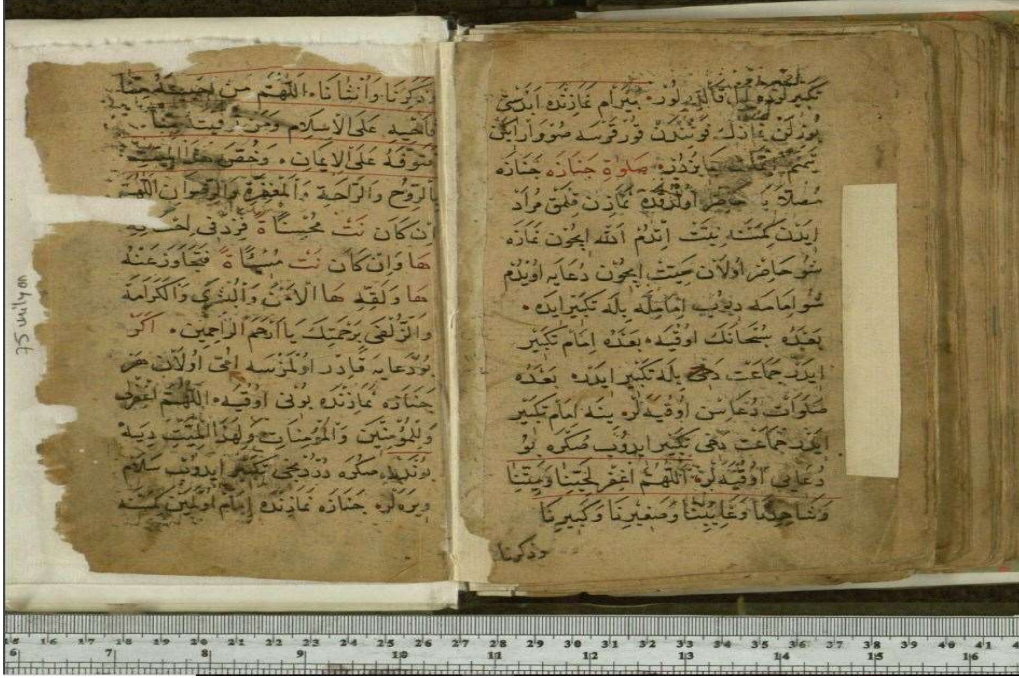 تكبيرلرده ال قالدرلور بيرام نمازنده
بوندن
صلوة جنازه جنازه
مصلايا حاضر اولدقده نمازن قلمق مراد
ايدن كمسنه نيت اتدم الله ايچون نمازه
شو حاضر اولان ميت ايچون دعايه اويدم
شو امامه ديوب امامله بله تكبير ايده
بعده سبحانك اوقيه بعده امام تكبير
ايدر جماعت دخى بله تكبير ايدر بعده
صلوات دعاسن اوقيه لر ينه امام تكبير
ايدر جماعت دخى تكبير ايدوب صكره بو
دعايى اوقيه لر اللهم اغفر لحينا وميتنا
وشاهدنا وغايبنا وصغيرنا وكبيرنا
وذكرنا
وذكرنا وانثانا اللهم من احييته منا
فاحيه على الاسلام ومن توفيته منا
فتوفه على الايمان وخص هذا الميت
بالروح والراحة والمغفرة والرضوان اللهم
ان كان نت محسنا ة فزد فى احسانه
ها وان كان نت مسيئا ة فتجاوز عنه
ها ولقه ها الامن والبشرى والكرامة
والزلفى برحمتك يا ارحم الراحمين اكر
بو دعايه قادر اولمزسه امى اولان هر
جنازه نمازنده بونى اوقيه اللهم اغفرلى
وللمؤمنين والمؤمنات ولهذا الميت ديه
بوندن صكره دردنجى تكبير ايدوب سلام
ويره لر جنازه نمازنده امام اولمين كمسنه
75 milyon
15 16 17 18 19 20 21 22 23 24 25 26 27 28 29 30 31 32 33 34 35 36 37 38 39 40 41
6 7 8 9 10 11 12 13 14 15 16